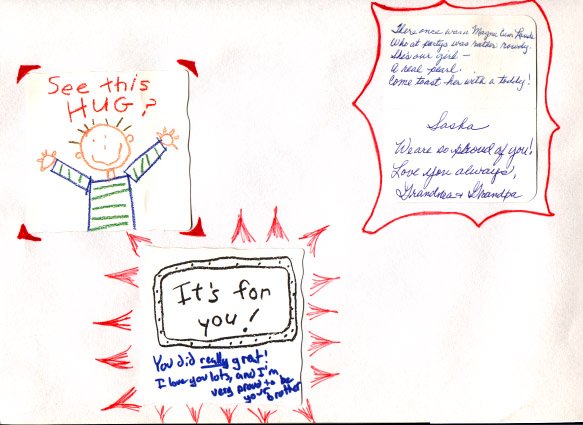 See this
HUG?
It's for
you!
You did really great!
I love you lots, and I'm
very proud to be
your brother
There once was a Magna Cum Laude
Who at partys was rather rowdy.
She's our girl –
A real pearl.
Come toast her with a toddy!
Sasha
We are so proud of you!
Love you always,
Grandma + Grandpa